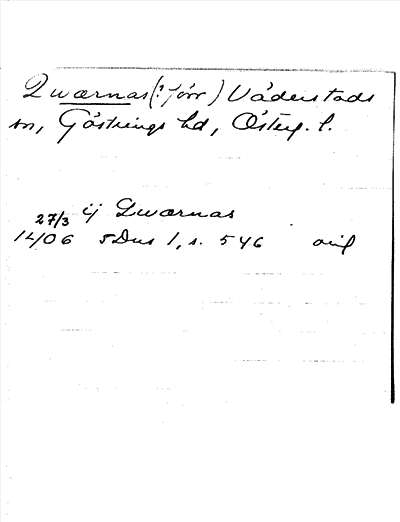 Qwærnas (? förr) Väderstads
sn, Göstrings hd, Österg. l.
27/3 ij Qwærnas
1406 SDns 1, s. 546 orig